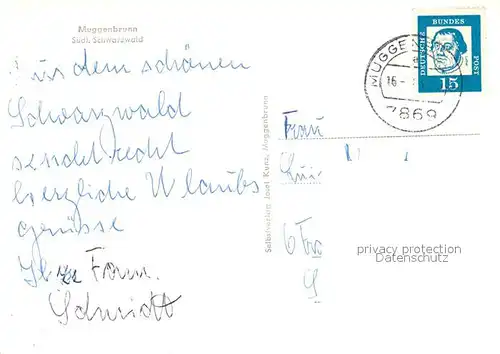 Muggenbrunn
Südl. Schwarzwald
Aus dem schönen
Schwarzwald
sendet recht
herzliche Urlaubs
grüsse
Ihre Fam.
Schmidt
Selbstverlag Josef Kunz, Muggenbrunn
DEUTSCHE
BUNDES
POST
15
MUGGEN
16-
7869
Frau
privacy protection
Datenschutz